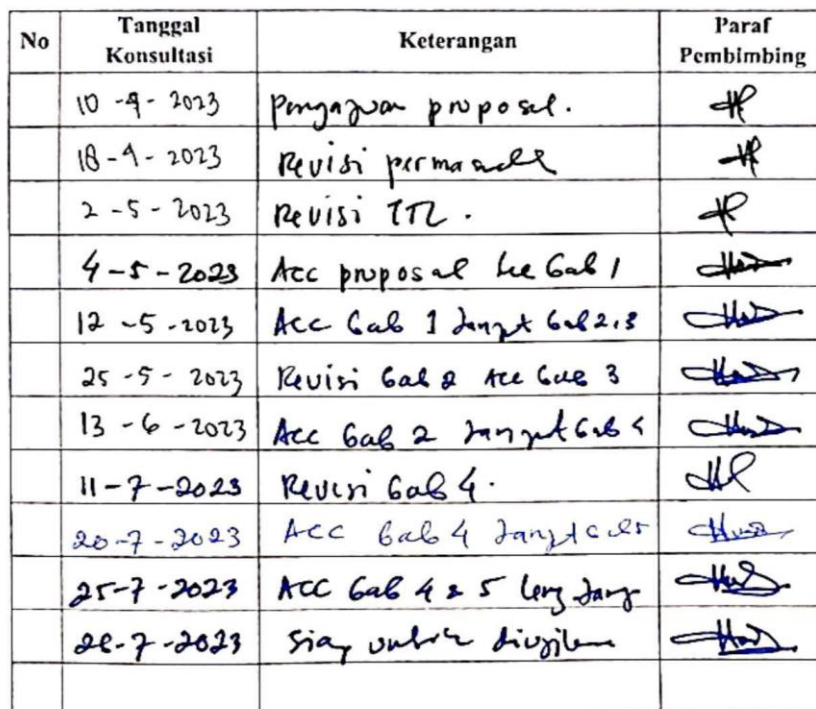 No Tanggal Konsultasi Keterangan Paraf Pembimbing
10 - 4 - 2023 Pengajuan proposal.
18 - 4 - 2023 Revisi
2 - 5 - 2023 Revisi
4 - 5 - 2023 Acc proposal ke bab 1
12 - 5 - 2023 Acc bab 1 lanjut bab 2,3
25 - 5 - 2023 Revisi bab 2 Acc bab 3
13 - 6 - 2023 Acc bab 2 lanjut bab 4
11 - 7 - 2023 Revisi bab 4.
20 - 7 - 2023 ACC bab 4 lanjut
25 - 7 - 2023 ACC bab 4 & 5
7 - 2023 Siap untuk diujikan